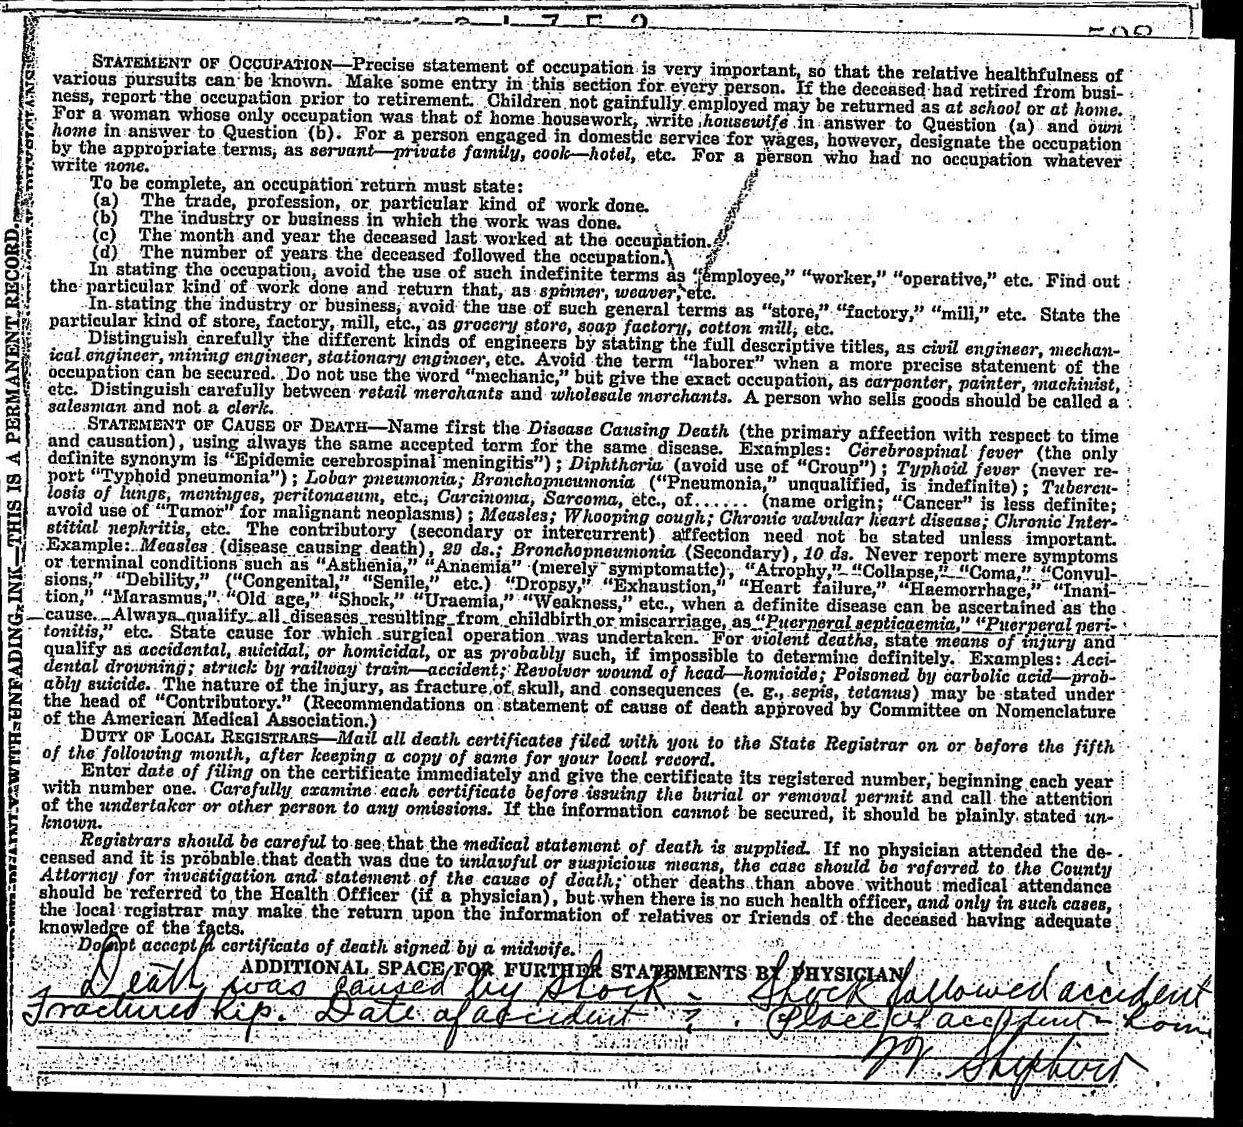 STATEMENT OF OCCUPATION—Precise statement of occupation is very important, so that the relative healthfulness of
various pursuits can be known. Make some entry in this section for every person. If the deceased had retired from busi-
ness, report the occupation prior to retirement. Children not gainfully employed may be returned as at school or at home.
For a woman whose only occupation was that of home housework, write housewife in answer to Question (a) and own
home in answer to Question (b). For a person engaged in domestic service for wages, however, designate the occupation
by the appropriate terms, as servant—private family, cook—hotel, etc. For a person who had no occupation whatever
write none.
To be complete, an occupation return must state:
(a) The trade, profession, or particular kind of work done.
(b) The industry or business in which the work was done.
(c) The month and year the deceased last worked at the occupation.
(d) The number of years the deceased followed the occupation.
In stating the occupation, avoid the use of such indefinite terms as "employee," "worker," "operative," etc. Find out
the particular kind of work done and return that, as spinner, weaver, etc.
In stating the industry or business, avoid the use of such general terms as "store," "factory," "mill," etc. State the
particular kind of store, factory, mill, etc., as grocery store, soap factory, cotton mill, etc.
Distinguish carefully the different kinds of engineers by stating the full descriptive titles, as civil engineer, mechan-
ical engineer, mining engineer, stationary engineer, etc. Avoid the term "laborer" when a more precise statement of the
occupation can be secured. Do not use the word "mechanic," but give the exact occupation, as carpenter, painter, machinist,
etc. Distinguish carefully between retail merchants and wholesale merchants. A person who sells goods should be called a
salesman and not a clerk.
STATEMENT OF CAUSE OF DEATH—Name first the Disease Causing Death (the primary affection with respect to time
and causation), using always the same accepted term for the same disease. Examples: Cerebrospinal fever (the only
definite synonym is "Epidemic cerebrospinal meningitis"); Diphtheria (avoid use of "Croup"); Typhoid fever (never re-
port "Typhoid pneumonia"); Lobar pneumonia; Bronchopneumonia ("Pneumonia," unqualified, is indefinite); Tubercu-
losis of lungs, meninges, peritonaeum, etc.; Carcinoma, Sarcoma, etc., of...... (name origin; "Cancer" is less definite;
avoid use of "Tumor" for malignant neoplasms); Measles; Whooping cough; Chronic valvular heart disease; Chronic Inter-
stitial nephritis, etc. The contributory (secondary or intercurrent) affection need not be stated unless important.
Example: Measles (disease causing death), 29 ds.; Bronchopneumonia (Secondary), 10 ds. Never report mere symptoms
or terminal conditions such as "Asthenia," "Anaemia" (merely symptomatic), "Atrophy," "Collapse," "Coma," "Convul-
sions," "Debility," ("Congenital," "Senile," etc.) "Dropsy," "Exhaustion," "Heart failure," "Haemorrhage," "Inani-
tion," "Marasmus," "Old age," "Shock," "Uraemia," "Weakness," etc., when a definite disease can be ascertained as the
cause. Always qualify all diseases resulting from childbirth or miscarriage, as "Puerperal septicaemia," "Puerperal peri-
tonitis," etc. State cause for which surgical operation was undertaken. For violent deaths, state means of injury and
qualify as accidental, suicidal, or homicidal, or as probably such, if impossible to determine definitely. Examples: Acci-
dental drowning; struck by railway train—accident; Revolver wound of head—homicide; Poisoned by carbolic acid—prob-
ably suicide. The nature of the injury, as fracture of skull, and consequences (e. g., sepis, tetanus) may be stated under
the head of "Contributory." (Recommendations on statement of cause of death approved by Committee on Nomenclature
of the American Medical Association.)
DUTY OF LOCAL REGISTRARS—Mail all death certificates filed with you to the State Registrar on or before the fifth
of the following month, after keeping a copy of same for your local record.
Enter date of filing on the certificate immediately and give the certificate its registered number, beginning each year
with number one. Carefully examine each certificate before issuing the burial or removal permit and call the attention
of the undertaker or other person to any omissions. If the information cannot be secured, it should be plainly stated un-
known.
Registrars should be careful to see that the medical statement of death is supplied. If no physician attended the de-
ceased and it is probable that death was due to unlawful or suspicious means, the case should be referred to the County
Attorney for investigation and statement of the cause of death; other deaths than above without medical attendance
should be referred to the Health Officer (if a physician), but when there is no such health officer, and only in such cases,
the local registrar may make the return upon the information of relatives or friends of the deceased having adequate
knowledge of the facts.
Do not accept a certificate of death signed by a midwife.
ADDITIONAL SPACE FOR FURTHER STATEMENTS BY PHYSICIAN
Death was caused by shock - Shock followed accident
Fractured hip. Date of accident ? . Place of accident - home
Shepherd
INK—THIS IS A PERMANENT RECORD.
WITH UNFADING